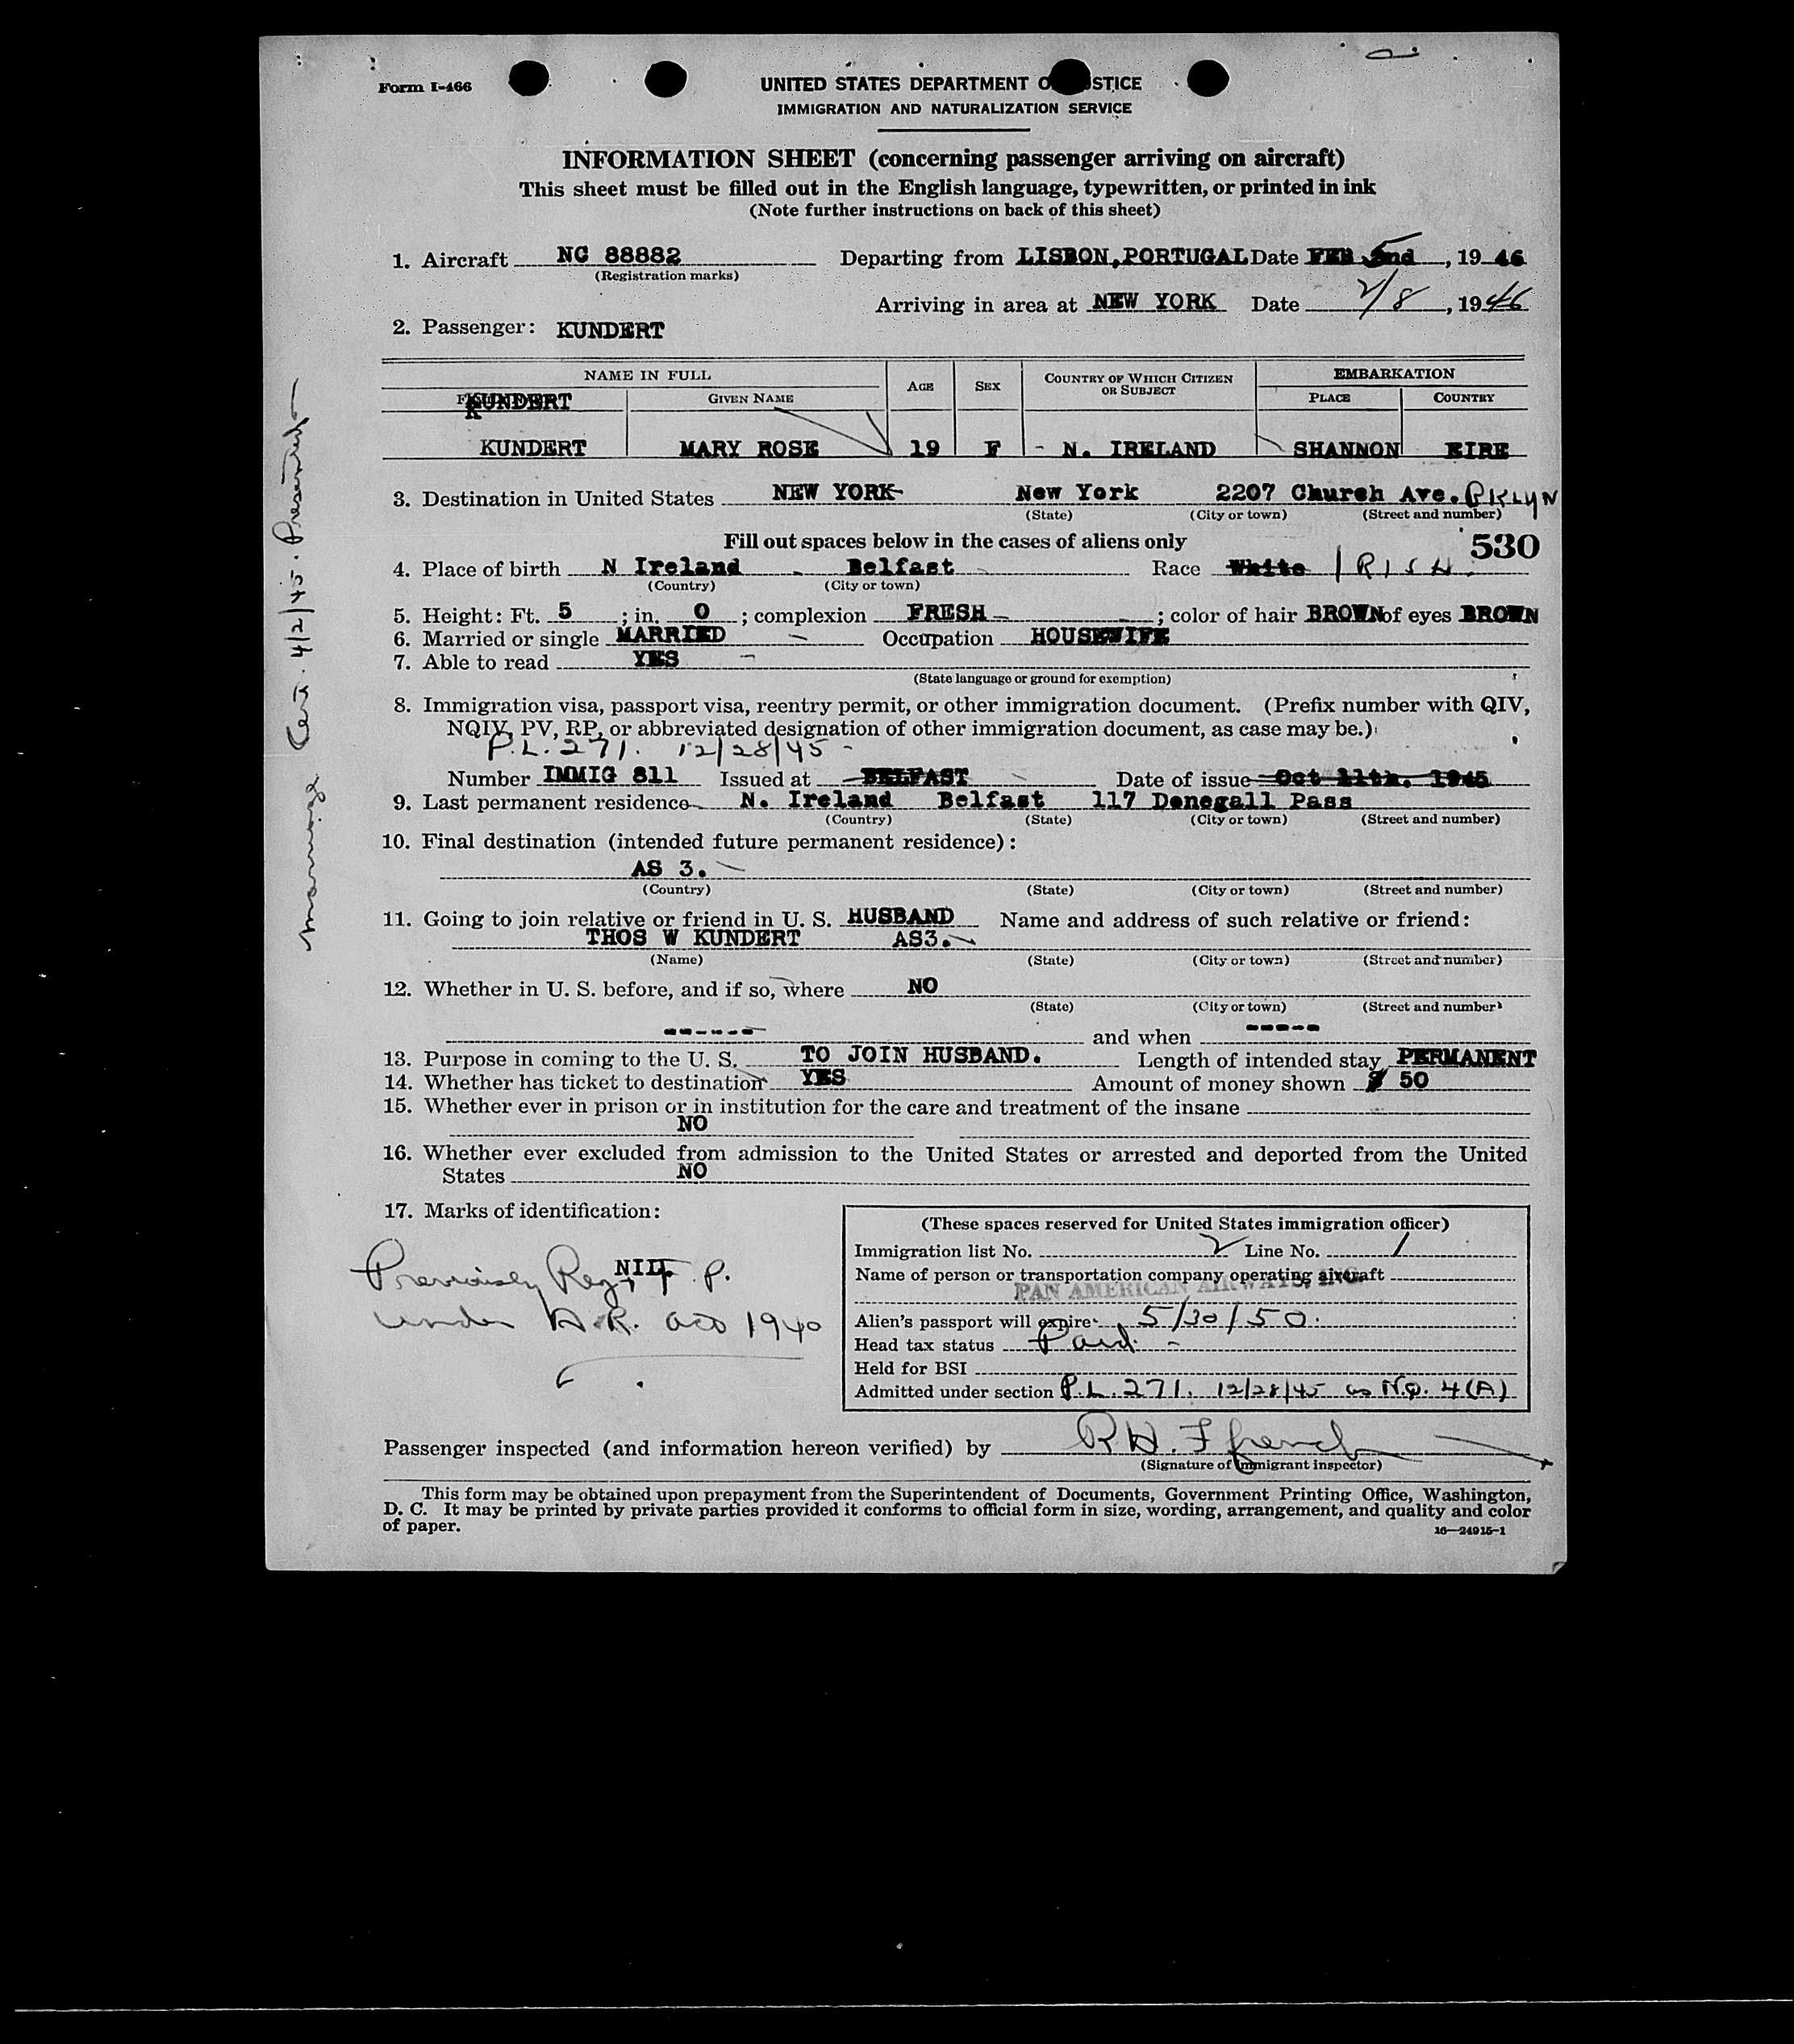 Form I-466
UNITED STATES DEPARTMENT O STICE
IMMIGRATION AND NATURALIZATION SERVICE
INFORMATION SHEET (concerning passenger arriving on aircraft)
This sheet must be filled out in the English language, typewritten, or printed in ink
(Note further instructions on back of this sheet)
1. Aircraft NC 88882 Departing from LISBON, PORTUGAL Date FEB 5nd, 1946
(Registration marks)
Arriving in area at NEW YORK Date 2/8, 1946
2. Passenger: KUNDERT
NAME IN FULL AGE SEX COUNTRY OF WHICH CITIZEN OR SUBJECT EMBARKATION
KUNDERT GIVEN NAME PLACE COUNTRY
KUNDERT MARY ROSE 19 F - N. IRELAND SHANNON EIRE
3. Destination in United States NEW YORK New York 2207 Church Ave. BKLYN
(State) (City or town) (Street and number)
Fill out spaces below in the cases of aliens only
530
4. Place of birth N Ireland - Belfast - Race White IRISH.
(Country) (City or town)
5. Height: Ft. 5; in. 0; complexion FRESH; color of hair BROWN of eyes BROWN
6. Married or single MARRIED - Occupation HOUSEWIFE
7. Able to read YES -
(State language or ground for exemption)
8. Immigration visa, passport visa, reentry permit, or other immigration document. (Prefix number with QIV,
NQIV, PV, RP, or abbreviated designation of other immigration document, as case may be.)
P.L. 271. 12/28/45 -
Number IMMIG 811 Issued at BELFAST Date of issue Oct 11th. 1945
9. Last permanent residence N. Ireland Belfast 117 Donegall Pass
(Country) (State) (City or town) (Street and number)
10. Final destination (intended future permanent residence):
AS 3.
(Country) (State) (City or town) (Street and number)
11. Going to join relative or friend in U. S. HUSBAND Name and address of such relative or friend:
THOS W KUNDERT AS3.
(Name) (State) (City or town) (Street and number)
12. Whether in U. S. before, and if so, where NO
(State) (City or town) (Street and number)
------ and when -----
13. Purpose in coming to the U. S. TO JOIN HUSBAND. Length of intended stay PERMANENT
14. Whether has ticket to destination YES Amount of money shown $ 50
15. Whether ever in prison or in institution for the care and treatment of the insane
NO
16. Whether ever excluded from admission to the United States or arrested and deported from the United
States NO
17. Marks of identification:
NIL
Previously Reg, F. P.
under A.R. act 1940
(These spaces reserved for United States immigration officer)
Immigration list No. 2 Line No. 1
Name of person or transportation company operating aircraft
PAN AMERICAN AIRWAYS, INC.
Alien's passport will expire 5/30/50.
Head tax status Paid. -
Held for BSI
Admitted under section P.L. 271. 12/28/45 as N.Q. 4(A)
Passenger inspected (and information hereon verified) by R H. Ffrench
(Signature of immigrant inspector)
This form may be obtained upon prepayment from the Superintendent of Documents, Government Printing Office, Washington,
D. C. It may be printed by private parties provided it conforms to official form in size, wording, arrangement, and quality and color
of paper.
16—24915-1
marriage Cert. 4/2/45. Presented